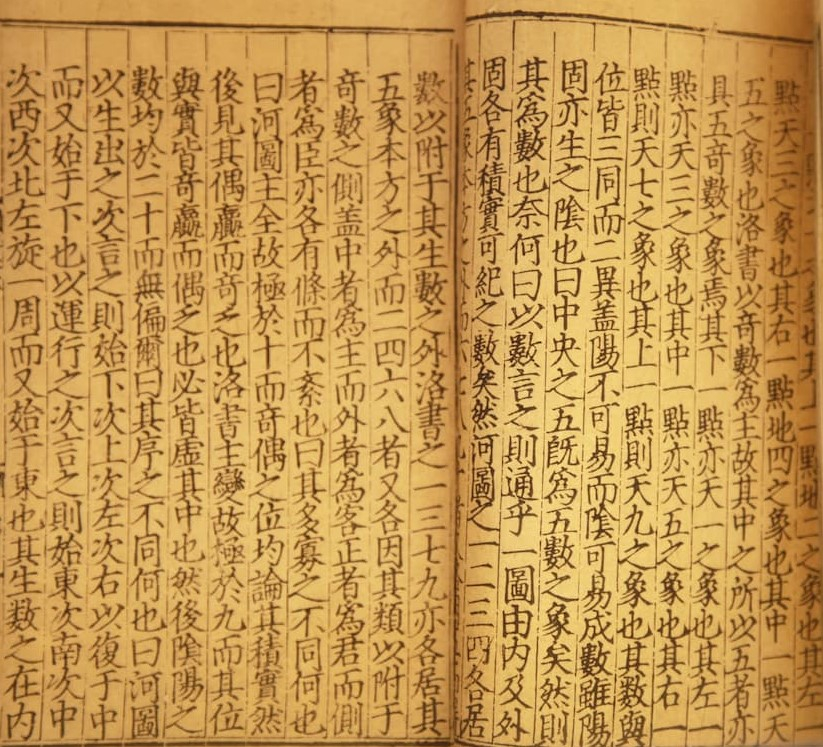 也其上一點地二之象也其左一
點天三之象也其右一點地四之象也其中一點天
五之象也洛書以奇數為主故其中之所以五者亦
具五奇數之象焉其下一點亦天一之象也其左一
點亦天三之象也其中一點亦天五之象也其右一
點則天七之象也其上一點則天九之象也其數與
位皆三同而二異盖陽不可易而陰可易成數雖陽
固亦生之陰也曰中央之五旣為五數之象矣然則
其為數也奈何曰以數言之則通乎一圖由内及外
固各有積實可紀之數矣然河圖之一二三四各居
其五象本方之外而六
數以附于其生數之外洛書之一三七九亦各居其
五象本方之外而二四六八者又各因其類以附于
奇數之側盖中者為主而外者為客正者為君而側
者為臣亦各有條而不紊也曰其多寡之不同何也
曰河圖主全故極於十而奇偶之位均論其積實然
後見其偶贏而奇乏也洛書主變故極於九而其位
與實皆奇贏而偶乏也必皆虛其中也然後陰陽之
數均於二十而無偏爾曰其序之不同何也曰河圖
以生出之次言之則始下次上次左次右以復于中
而又始于下也以運行之次言之則始東次南次中
次西次北左旋一周而又始于東也其生數之在内